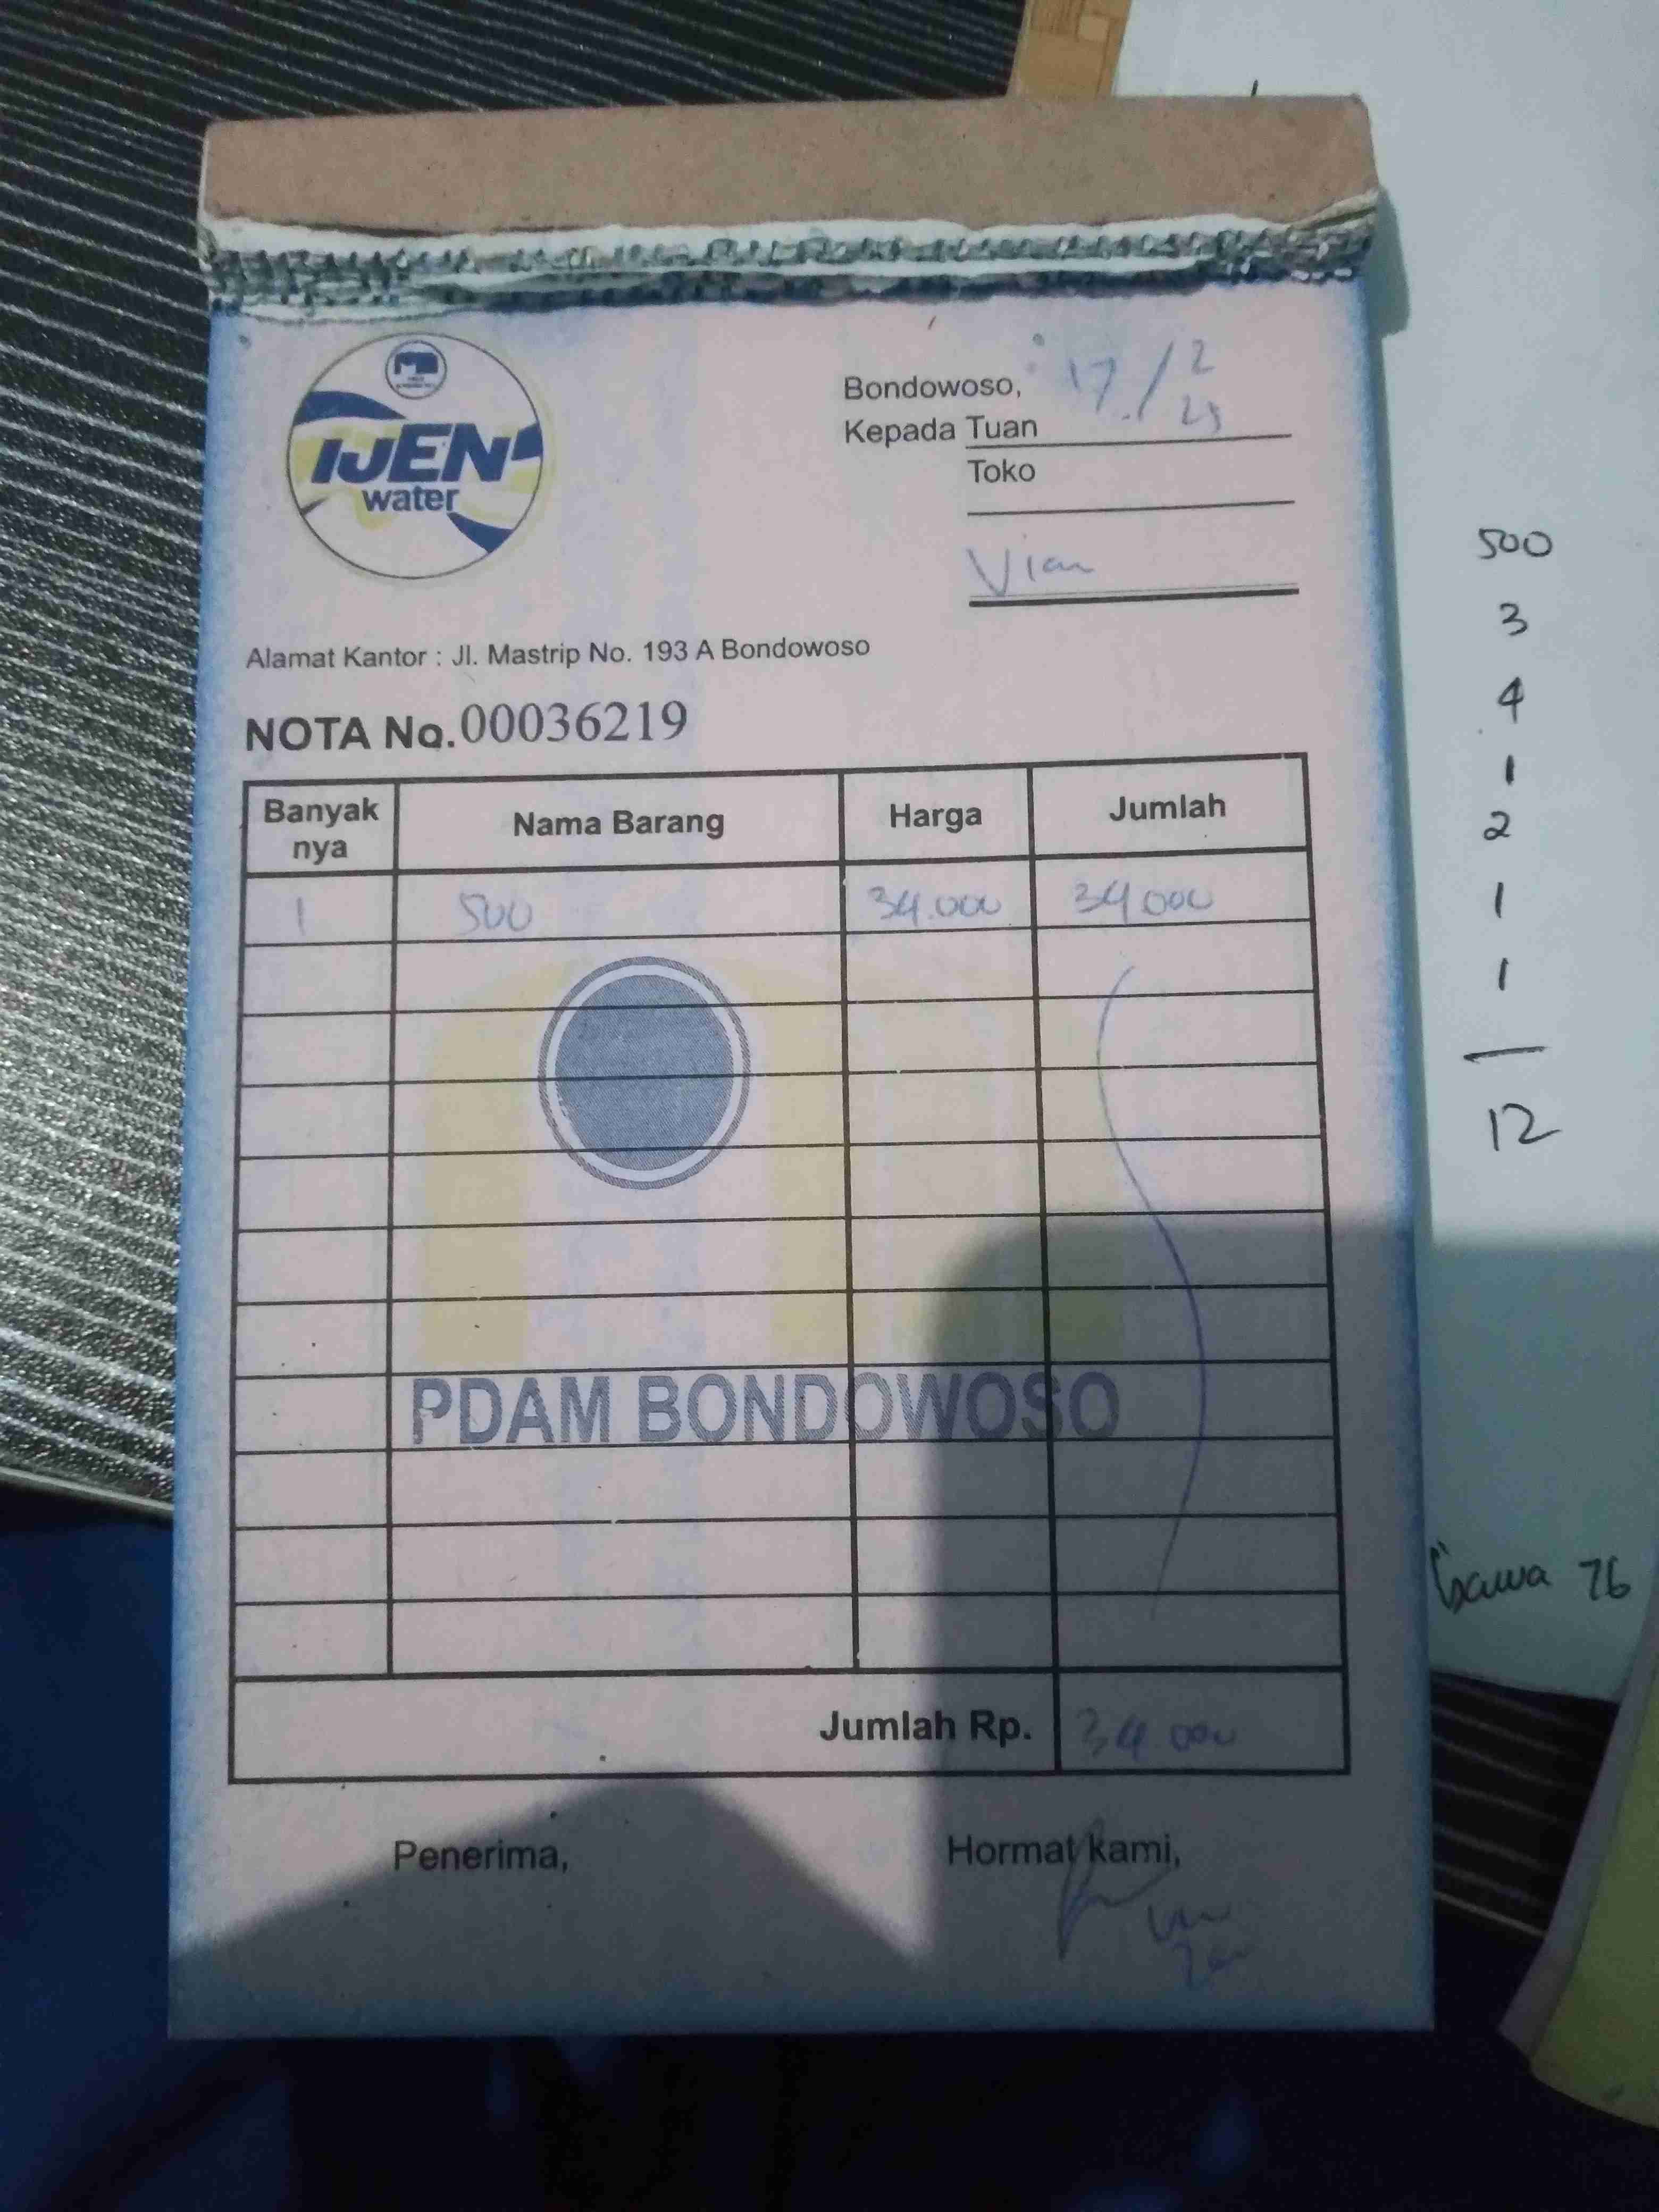 IJEN
water
Bondowoso, 17/2
Kepada Tuan
Toko
Vian
Alamat Kantor : Jl. Mastrip No. 193 A Bondowoso
NOTA No. 00036219
Banyak nya Nama Barang Harga Jumlah
1 500 34.000 34.000
PDAM BONDOWOSO
Jumlah Rp. 34.000
Penerima, Hormat kami,
500
3
4
1
2
1
1
12
bawa 76